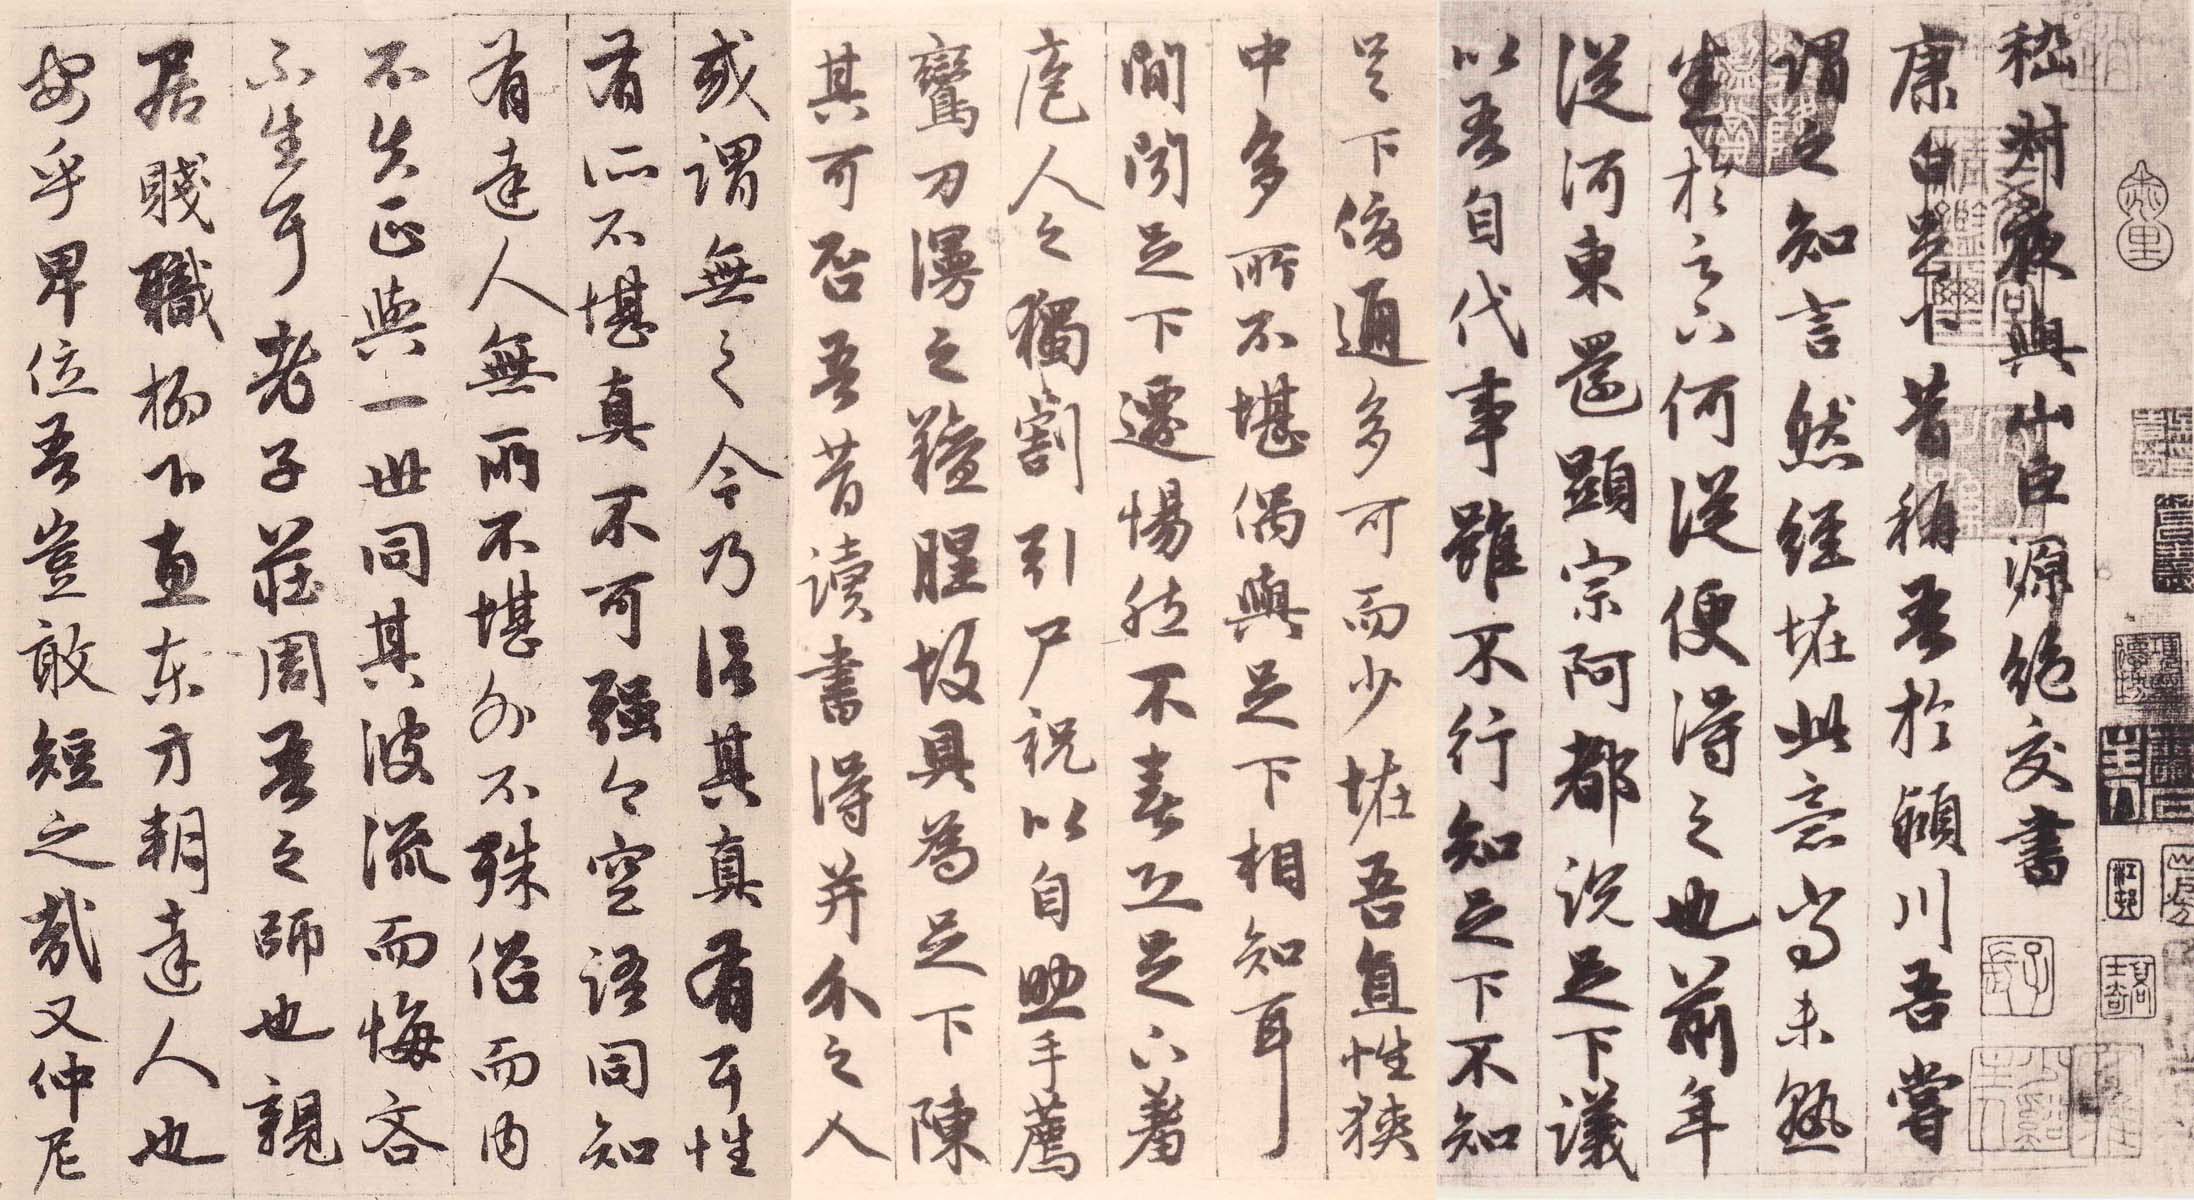 嵇叔夜與山巨源絕交書
康白足下昔稱吾於潁川吾嘗
謂之知言然經怪此意尚未熟
生於言下何從便得之也前年
從河東還顯宗阿都說足下議
以吾自代事雖不行知足下不知
足下傍通多可而少怪吾直性狹
中多所不堪偶與足下相知耳
間聞足下遷惕然不喜恐足下羞
庖人之獨割引尸祝以自助手薦
鸞刀漫之羶腥故具為足下陳
其可否吾昔讀書得并介之人
或謂無之今乃信其真有耳性
有所不堪真不可强今空語同知
有達人無所不堪外不殊俗而內
不失正與一世同其波流而悔吝
不生耳老子莊周吾之師也親
居賤職柳下惠東方朔達人也
安乎卑位吾豈敢短之哉又仲尼